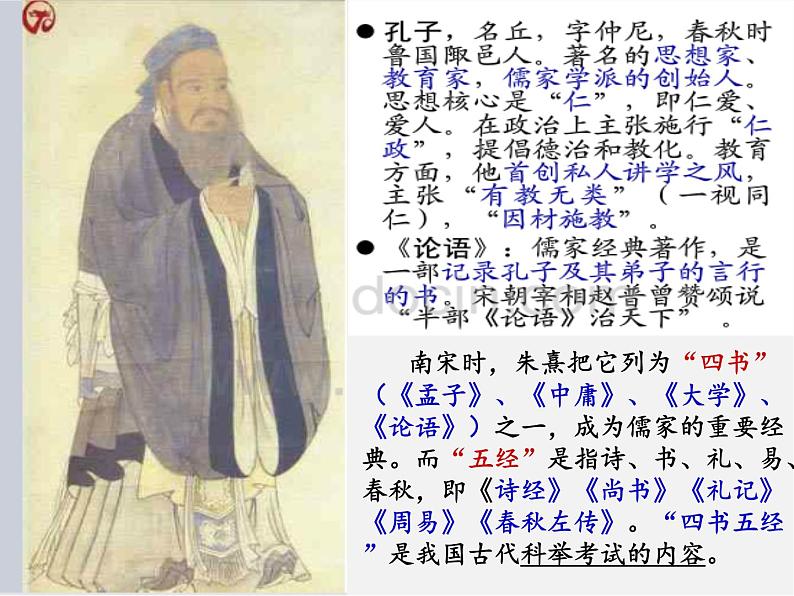 ● 孔子，名丘，字仲尼，春秋时
鲁国陬邑人。著名的思想家、
教育家，儒家学派的创始人。
思想核心是“仁”，即仁爱、
爱人。在政治上主张施行“仁
政”，提倡德治和教化。教育
方面，他首创私人讲学之风，
主张“有教无类”（一视同
仁），“因材施教”。
● 《论语》：儒家经典著作，是
一部记录孔子及其弟子的言行
的书。宋朝宰相赵普曾赞颂说
“半部《论语》治天下” 。
南宋时，朱熹把它列为“四书”
（《孟子》、《中庸》、《大学》、
《论语》）之一，成为儒家的重要经
典。而“五经”是指诗、书、礼、易、
春秋，即《诗经》《尚书》《礼记》
《周易》《春秋左传》。“四书五经
”是我国古代科举考试的内容。